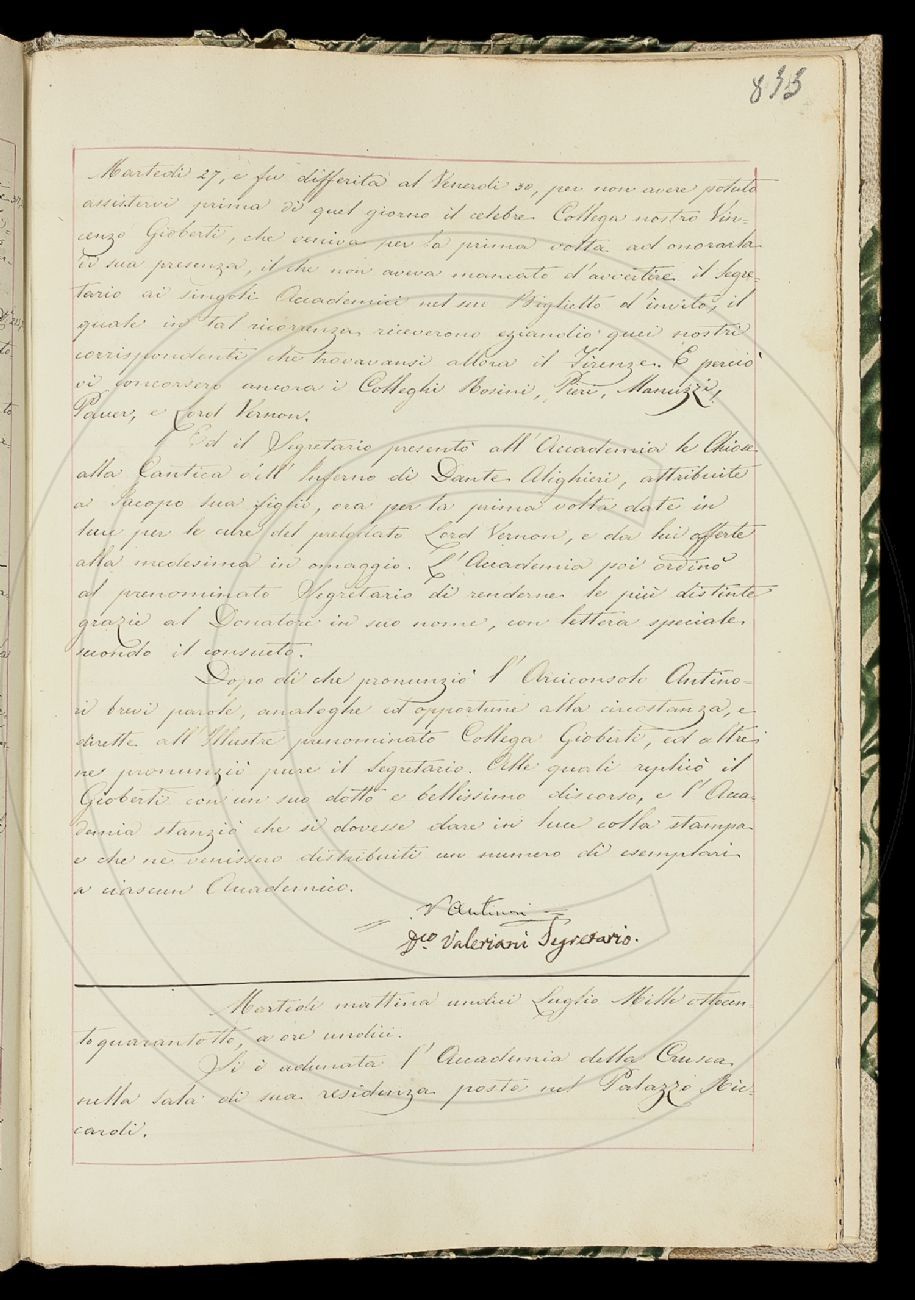 833
Martedì 27, e fu differita al Venerdì 30, per non avere potuto
assistervi prima di quel giorno il celebre Collega nostro Vin-
cenzo Gioberti, che veniva per la prima volta ad onorarla
di sua presenza, il che non aveva mancato d'avvertire il Segre-
tario ai singoli Accademici nel suo Biglietto d'invito, il
quale in tal ricorrenza riceverono eziandio quei nostri
corrispondenti che trovavansi allora il Firenze. E perciò
vi concorsero ancora i Colleghi Rosini, Pieri, Manuzzi,
Pauer, e Lord Vernon.
Ed il Segretario presentò all'Accademia le Chiose
alla Cantica dell'Inferno di Dante Alighieri, attribuite
a Jacopo suo figlio, ora per la prima volta date in
luce per le cure del prelodato Lord Vernon, e da lui offerte
alla medesima in omaggio. L'Accademia poi ordinò
al prenominato Segretario di renderne le più distinte
grazie al Donatore in suo nome, con lettera speciale,
secondo il consueto.
Dopo di che pronunziò l'Arciconsolo Antino-
ri brevi parole, analoghe ed opportune alla circostanza, e
dirette all'Illustre prenominato Collega Gioberti, ed altre
ne pronunziò pure il Segretario. Alle quali replicò il
Gioberti con un suo dotto e bellissimo discorso, e l'Acca-
demia stanziò che si dovesse dare in luce colla stampa
e che ne venissero distribuiti un numero di esemplari
a ciascun Accademico.
V Antinori
Dco. Valeriani Segretario.
Martedì mattina undici Luglio Mille ottocen
to quarantotto, a ore undici.
Si è adunata l'Accademia della Crusca
nella sala di sua residenza posta nel Palazzo Ric-
cardi.